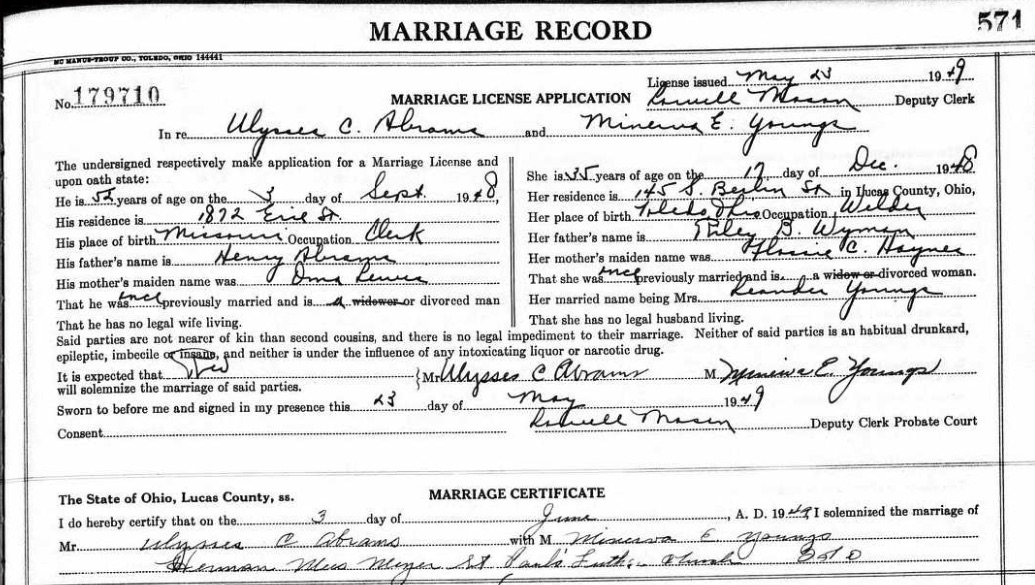 MARRIAGE RECORD
571
MC MANUS-TROUP CO., TOLEDO, OHIO 144441
License issued May 23 1949
No. 179710 MARRIAGE LICENSE APPLICATION Lowell Mason Deputy Clerk
In re Ulysses C. Abrams and Minerva E. Youngs
The undersigned respectively make application for a Marriage License and
upon oath state:
He is 52 years of age on the 3 day of Sept. 1948,
His residence is 1872 Erie St.
His place of birth Missouri Occupation Clerk
His father's name is Henry Abrams
His mother's maiden name was Oma Lewis
That he was once previously married and is a widower or divorced man
That he has no legal wife living.
She is 35 years of age on the 17 day of Dec. 1948
Her residence is 145 S. Berlin St. in Lucas County, Ohio,
Her place of birth Toledo, Ohio Occupation Welder
Her father's name is Riley B. Wyman
Her mother's maiden name was Flossie C. Haynes
That she was once previously married and is a widow or divorced woman.
Her married name being Mrs. Leander Youngs
That she has no legal husband living.
Said parties are not nearer of kin than second cousins, and there is no legal impediment to their marriage. Neither of said parties is an habitual drunkard,
epileptic, imbecile or insane, and neither is under the influence of any intoxicating liquor or narcotic drug.
It is expected that
will solemnize the marriage of said parties.
Mr. Ulysses C Abrams M Minerva E. Youngs
Sworn to before me and signed in my presence this 23 day of May 1949
Consent Lowell Mason Deputy Clerk Probate Court
The State of Ohio, Lucas County, ss. MARRIAGE CERTIFICATE
I do hereby certify that on the 3 day of June, A. D. 1949 I solemnized the marriage of
Mr. Ulysses C Abrams with M Minerva E. Youngs
Herman Meyer St Paul's Luth. Church